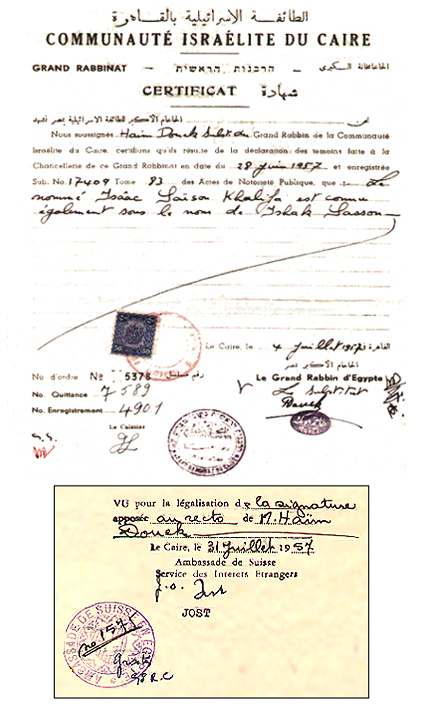 الطائفة الاسرائيلية بالقاهرة
COMMUNAUTÉ ISRAÉLITE DU CAIRE
GRAND RABBINAT — הרבנות הראשית — الحاخامخانة الكبرى
CERTIFICAT شهادة
نحن الحاخام الأكبر للطائفة الاسرائيلية بمصر نشهد
Nous soussignés Haim Douek Subst. du Grand Rabbin de la Communauté
Israélite du Caire, certifions qu'ils résulte de la déclaration des temoins faite à la
Chancellerie de ce Grand Rabbinat en date du 28 juin 1957 et enregistrée
Sub. No. 17409 Tome 83 des Actes de Notoriété Publique, que : Le
nommé Isaac Saison Khalifa est connu
également sous le nom de Ishak Sasson
Le Caire, le 4 juillet 1957 القاهرة
الحاخام الأكبر
No d'ordre No 5378 رقم مسلسل
Le Grand Rabbin d'Egypte
No. Quittance 7589
Le Substitut
Douek
No. Enregistrement 4901
Le Caissier
S.S.
VU pour la légalisation de la signature
apposée au recto de M. Haïm
Douek
Le Caire, le 31 Juillet 1957
Ambassade de Suisse
Service des Interets Etrangers
g.o. Jost
JOST
AMBASSADE DE SUISSE EN EGYPTE
no 157